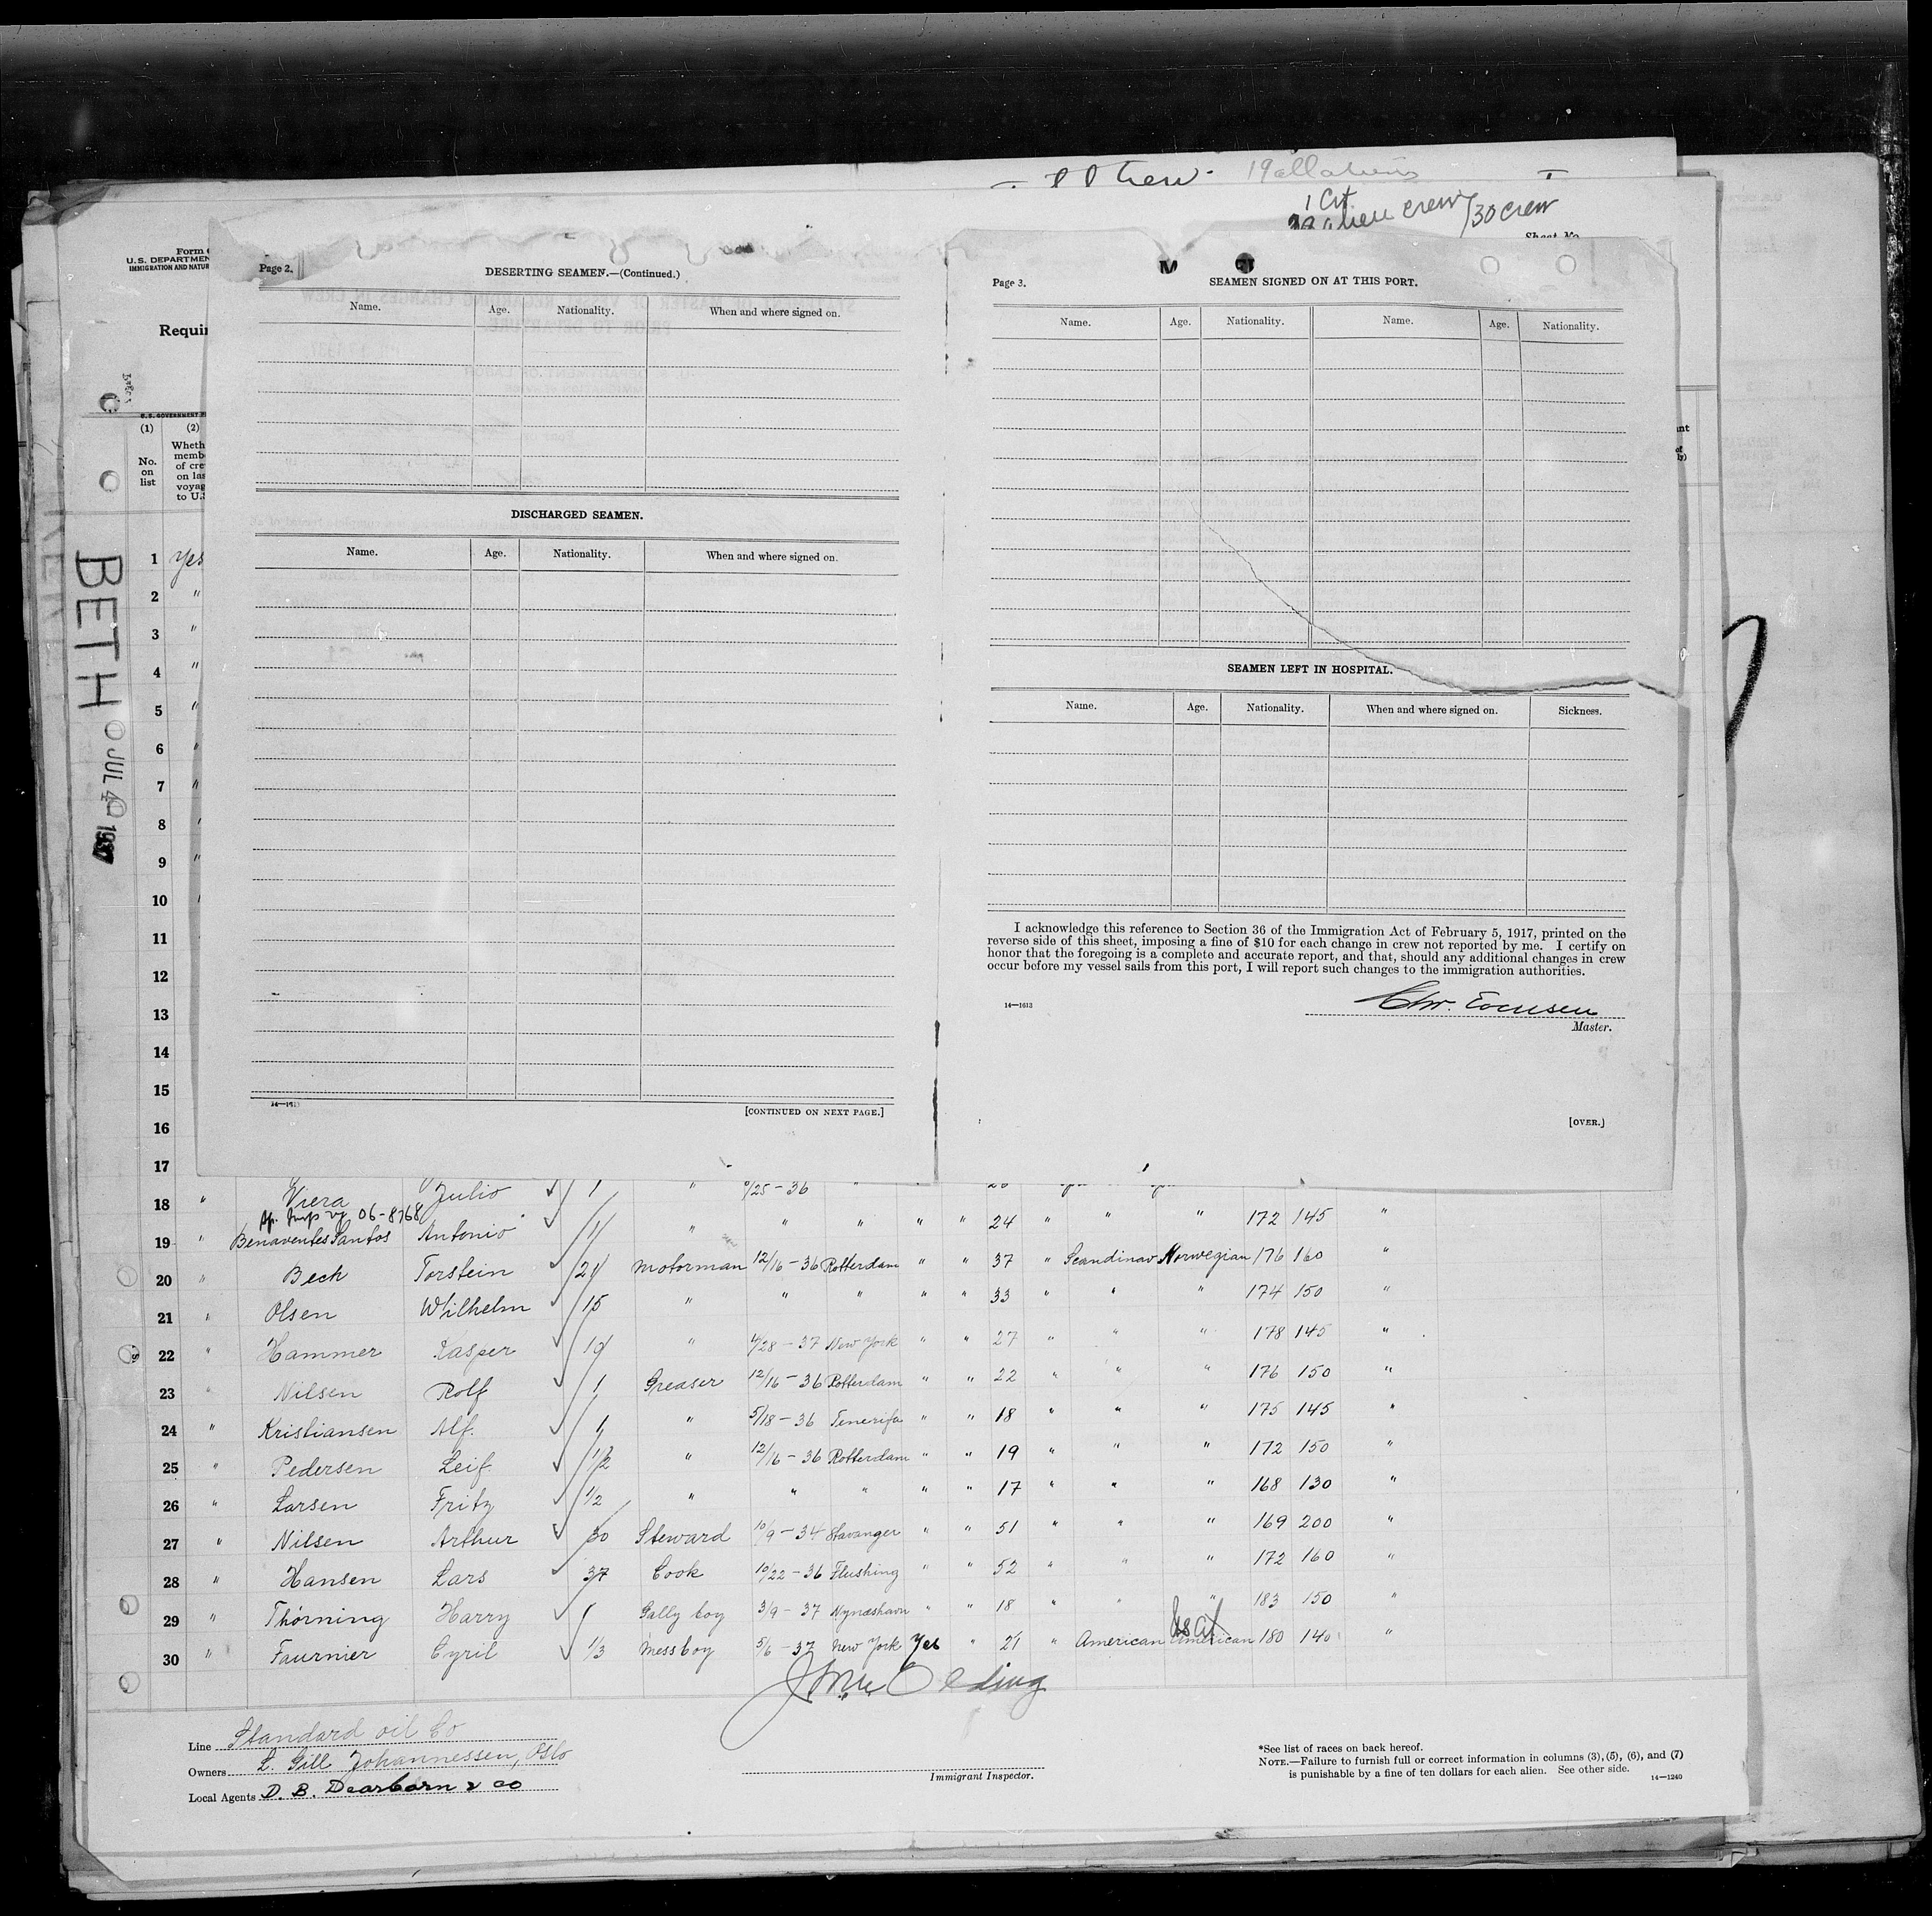 1 Cit
alien crew / 30 crew
Form
U.S. DEPARTMEN
IMMIGRATION AND NATUR
Requir
U.S. GOVERNMENT
(1) (2)
No. on list
Wheth
memb
of cre
on las
voyag
to U.S
BETH
JUL 4 1937
1 Yes
2 "
3 "
4 "
5 "
6 "
7 "
8 "
9 "
10 "
11
12
13
14
15
16
17
Page 2.
DESERTING SEAMEN.—(Continued.)
Name. Age. Nationality. When and where signed on.
DISCHARGED SEAMEN.
Name. Age. Nationality. When and where signed on.
[CONTINUED ON NEXT PAGE.]
Page 3.
SEAMEN SIGNED ON AT THIS PORT.
Name. Age. Nationality. Name. Age. Nationality.
SEAMEN LEFT IN HOSPITAL.
Name. Age. Nationality. When and where signed on. Sickness.
I acknowledge this reference to Section 36 of the Immigration Act of February 5, 1917, printed on the
reverse side of this sheet, imposing a fine of $10 for each change in crew not reported by me. I certify on
honor that the foregoing is a complete and accurate report, and that, should any additional changes in crew
occur before my vessel sails from this port, I will report such changes to the immigration authorities.
14—1613
Chr. Evensen
Master.
[OVER.]
18 " Viera Julio 1 " /25-36 "
06-8768
19 " Benaventes Santos Antonio 1 " " " " " 24 " " " 172 145 "
20 " Bech Torstein 21 Motorman 12/16-36 Rotterdam " " 37 " Scandinav Norwegian 176 160 "
21 " Olsen Wilhelm 15 " " " " " 33 " " " 174 150 "
22 " Hammer Kasper 10 " 4/28-37 New York " " 27 " " " 178 145 "
23 " Nilsen Rolf 1 Greaser 12/16-36 Rotterdam " " 22 " " " 176 150 "
24 " Kristiansen Alf. 1 " 5/18-36 Tenerifa " " 18 " " " 175 145 "
25 " Pedersen Leif 1/2 " 12/16-36 Rotterdam " " 19 " " " 172 150 "
26 " Larsen Fritz 1/2 " " " " " 17 " " " 168 130 "
27 " Nilsen Arthur 30 Steward 10/9-34 Stavanger " " 51 " " " 169 200 "
28 " Hansen Lars 37 Cook 10/22-36 Flushing " " 52 " " " 172 160 "
29 " Thorning Harry 1 Gally boy 3/9-37 Nynæshavn " " 18 " " " 183 150 "
30 " Faurnier Cyril 1/3 Messboy 5/6-37 New York Yes " 21 " American American 180 140 "
Line Standard oil Co
Owners L. Gill Johannessen, Oslo
Local Agents D. B. Dearborn & co
Immigrant Inspector.
*See list of races on back hereof.
NOTE.—Failure to furnish full or correct information in columns (3), (5), (6), and (7)
is punishable by a fine of ten dollars for each alien. See other side.
14—1240